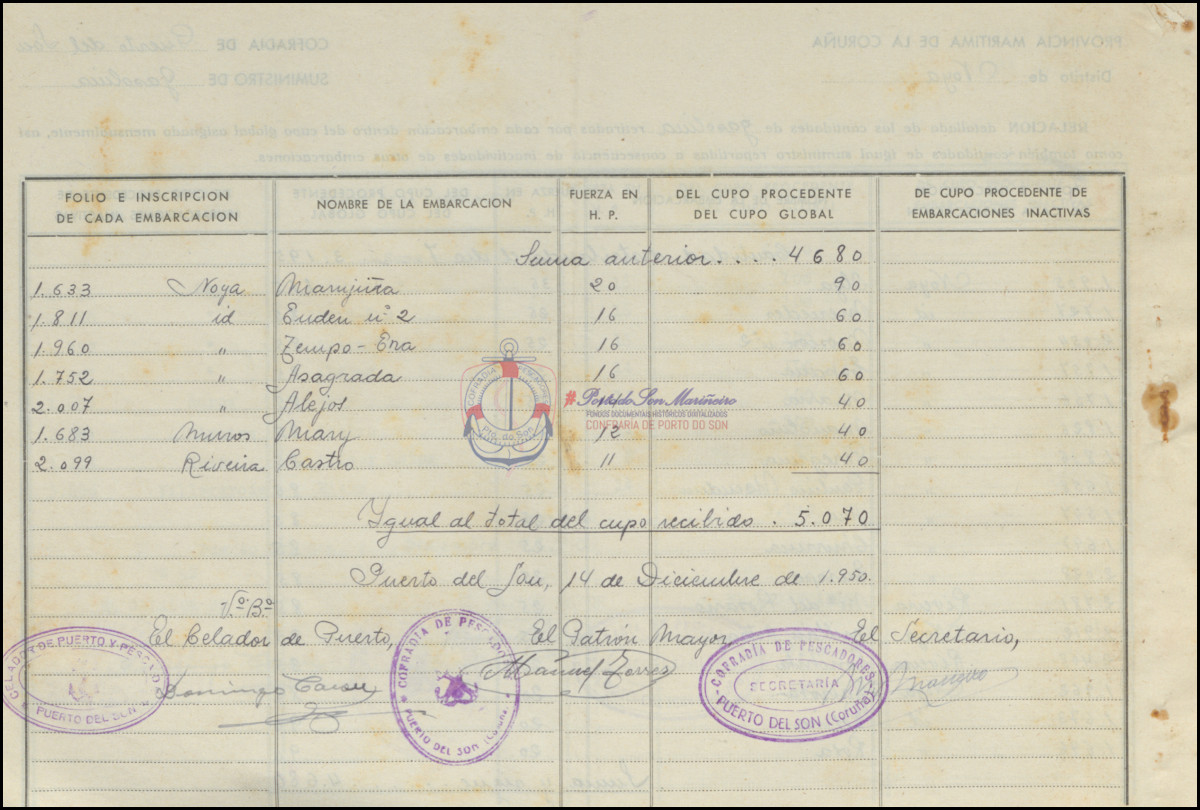 PROVINCIA MARITIMA DE LA CORUÑA
COFRADIA DE Puerto del Son
Distrito de Noya
SUMINISTRO DE gasolina
RELACION detallada de las cantidades de gasolina retiradas por cada embarcación dentro del cupo global asignado mensualmente, así
como también cantidades de igual suministro repartidas a consecuencia de inactividades de otras embarcaciones.
FOLIO E INSCRIPCION DE CADA EMBARCACION NOMBRE DE LA EMBARCACION FUERZA EN H. P. DEL CUPO PROCEDENTE DEL CUPO GLOBAL DE CUPO PROCEDENTE DE EMBARCACIONES INACTIVAS
Suma anterior.... 4680
1.633 Noya Marujiña 20 90
1.811 id Euden nº 2 16 60
1.960 " Tempo-Era 16 60
1.752 " Asagrada 16 60
2.007 " Alejos 40
1.683 Muros Mary 12 40
2.099 Riveira Castro 11 40
COFRADIA PESCADORES
Pto. do Son
#Porto do Son Mariñeiro
FONDOS DOCUMENTAIS HISTÓRICOS DIGITALIZADOS
CONFRARÍA DE PORTO DO SON
Ygual al total del cupo recibido. 5.070
Puerto del Son, 14 de Diciembre de 1.950.
Vº Bº
El Celador de Puerto, El Patrón Mayor, El Secretario,
CELADOR DE PUERTO Y PESCA
PUERTO DEL SON
Domingo
COFRADIA DE PESCADO
PUERTO DEL SON (CORUÑA)
Manuel Torres
COFRADÍA DE PESCADORES
SECRETARÍA
PUERTO DEL SON (Coruña)
Suma y sigue 4.680